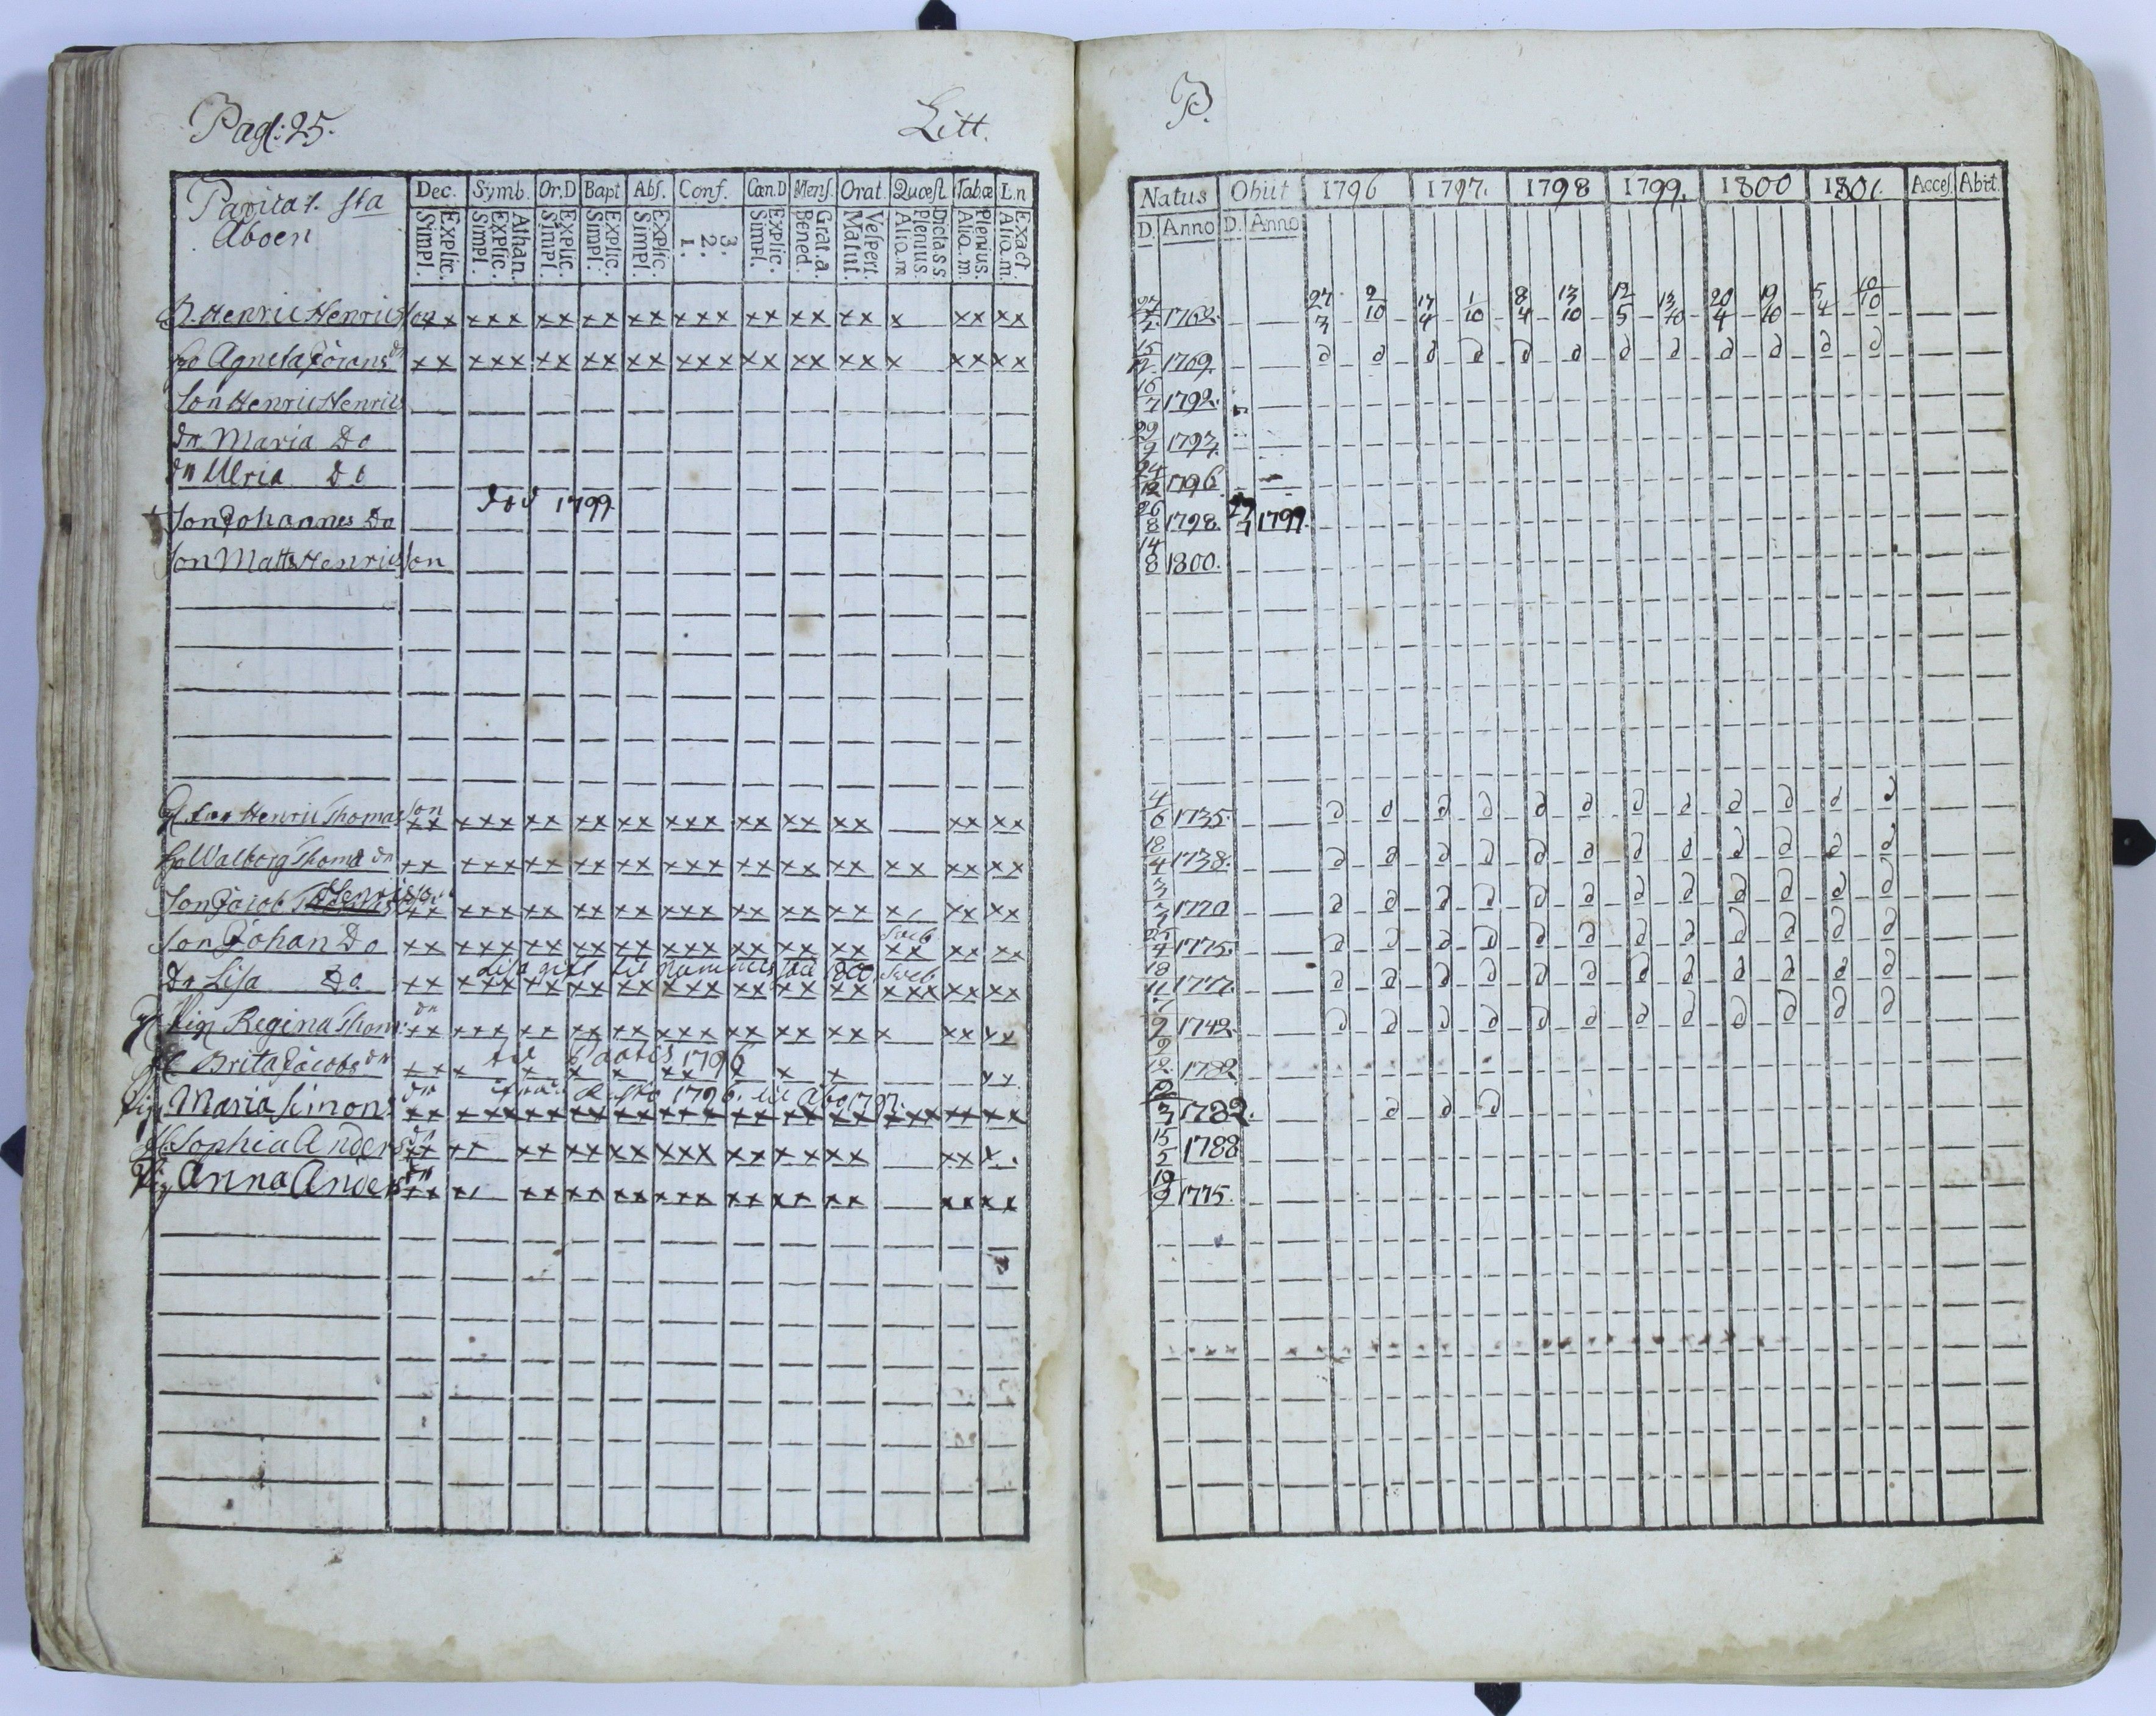 Pag: 25.
Litt.
B.
Dec. Symb. Or.D Bapt Abs. Conf. Can.D Mens. Orat. Quæst. Tabæ L.n
Explic. Simpl. Athan. Explic. Simpl. Explic. Simpl. Explic. Simpl. Explic. Simpl. 3. 2. 1. Explic. Simpl. Grat.a. Bened. Vespert. Matut. Dicta s s Plenius. Aliq.m Plenius. Aliq.m. Exact Aliq.m.
Natus Obiit 1796 1797. 1798 1799. 1800 1801. Acces. Abiit.
D. Anno D. Anno
Aboen
B. Henric Henricsson xx xxx xx xx xx xxx xx xx xx x xx xx
27/2 1762. 27/3 2/10 17/4 1/10 8/4 13/10 12/5 13/10 20/4 19/10 5/4 10/10
ho Agneta Jörans dr xx xxx xx xx xx xxx xx xx xx x xx xx
15/12 1769. d d d d d d d d d d d d
Son Henric Henrics
16/7 1792.
dr Maria Do
29/9 1793.
dr Ulrica Do
24/12 1796
Son Johannes Do död 1799
26/8 1798. 1799.
Son Matts Henricsson
14/8 1800.
Henric Thomasson xx xxx xx xx xx xxx xx xx xx xx xx
4/6 1735. d d d d d d d d d d d d
ho Walborg Thoma dr xx xxx xx xx xx xxx xx xx xx xx xx xx
18/4 1738. d d d d d d d d d d d d
Son Jacob Henricsson xx xxx xx xx xx xxx xx xx xx x xx xx
1770 d d d d d d d d d d d d
Son Johan Do xx xxx xx xx xx xxx xx xx xx xx xx xx
1775. d d d d d d d d d d d d
Lisa gift til 1800
Dr Lisa Do xx xxx xx xx xx xxx xx xx xx xxx xx xx
18/11 1777. d d d d d d d d d d d d
Pig Regina Thom: dr xx xxx xx xx xx xxx xx xx xx x xx xx
7/9 1742. d d d d d d d d d d d d
Brita Jacobs dr til 1796
1782
Pig Maria Simons dr ifrån 1796. til Åbo 1797.
1782. d d d
Sophia Anders dr xx xx xx xx xx xxx xx xx xx xx x
15/5 1788
Pig Anna Anders dr xx x xx xx xx xxx xx xx xx xx xx
19/9 1775.